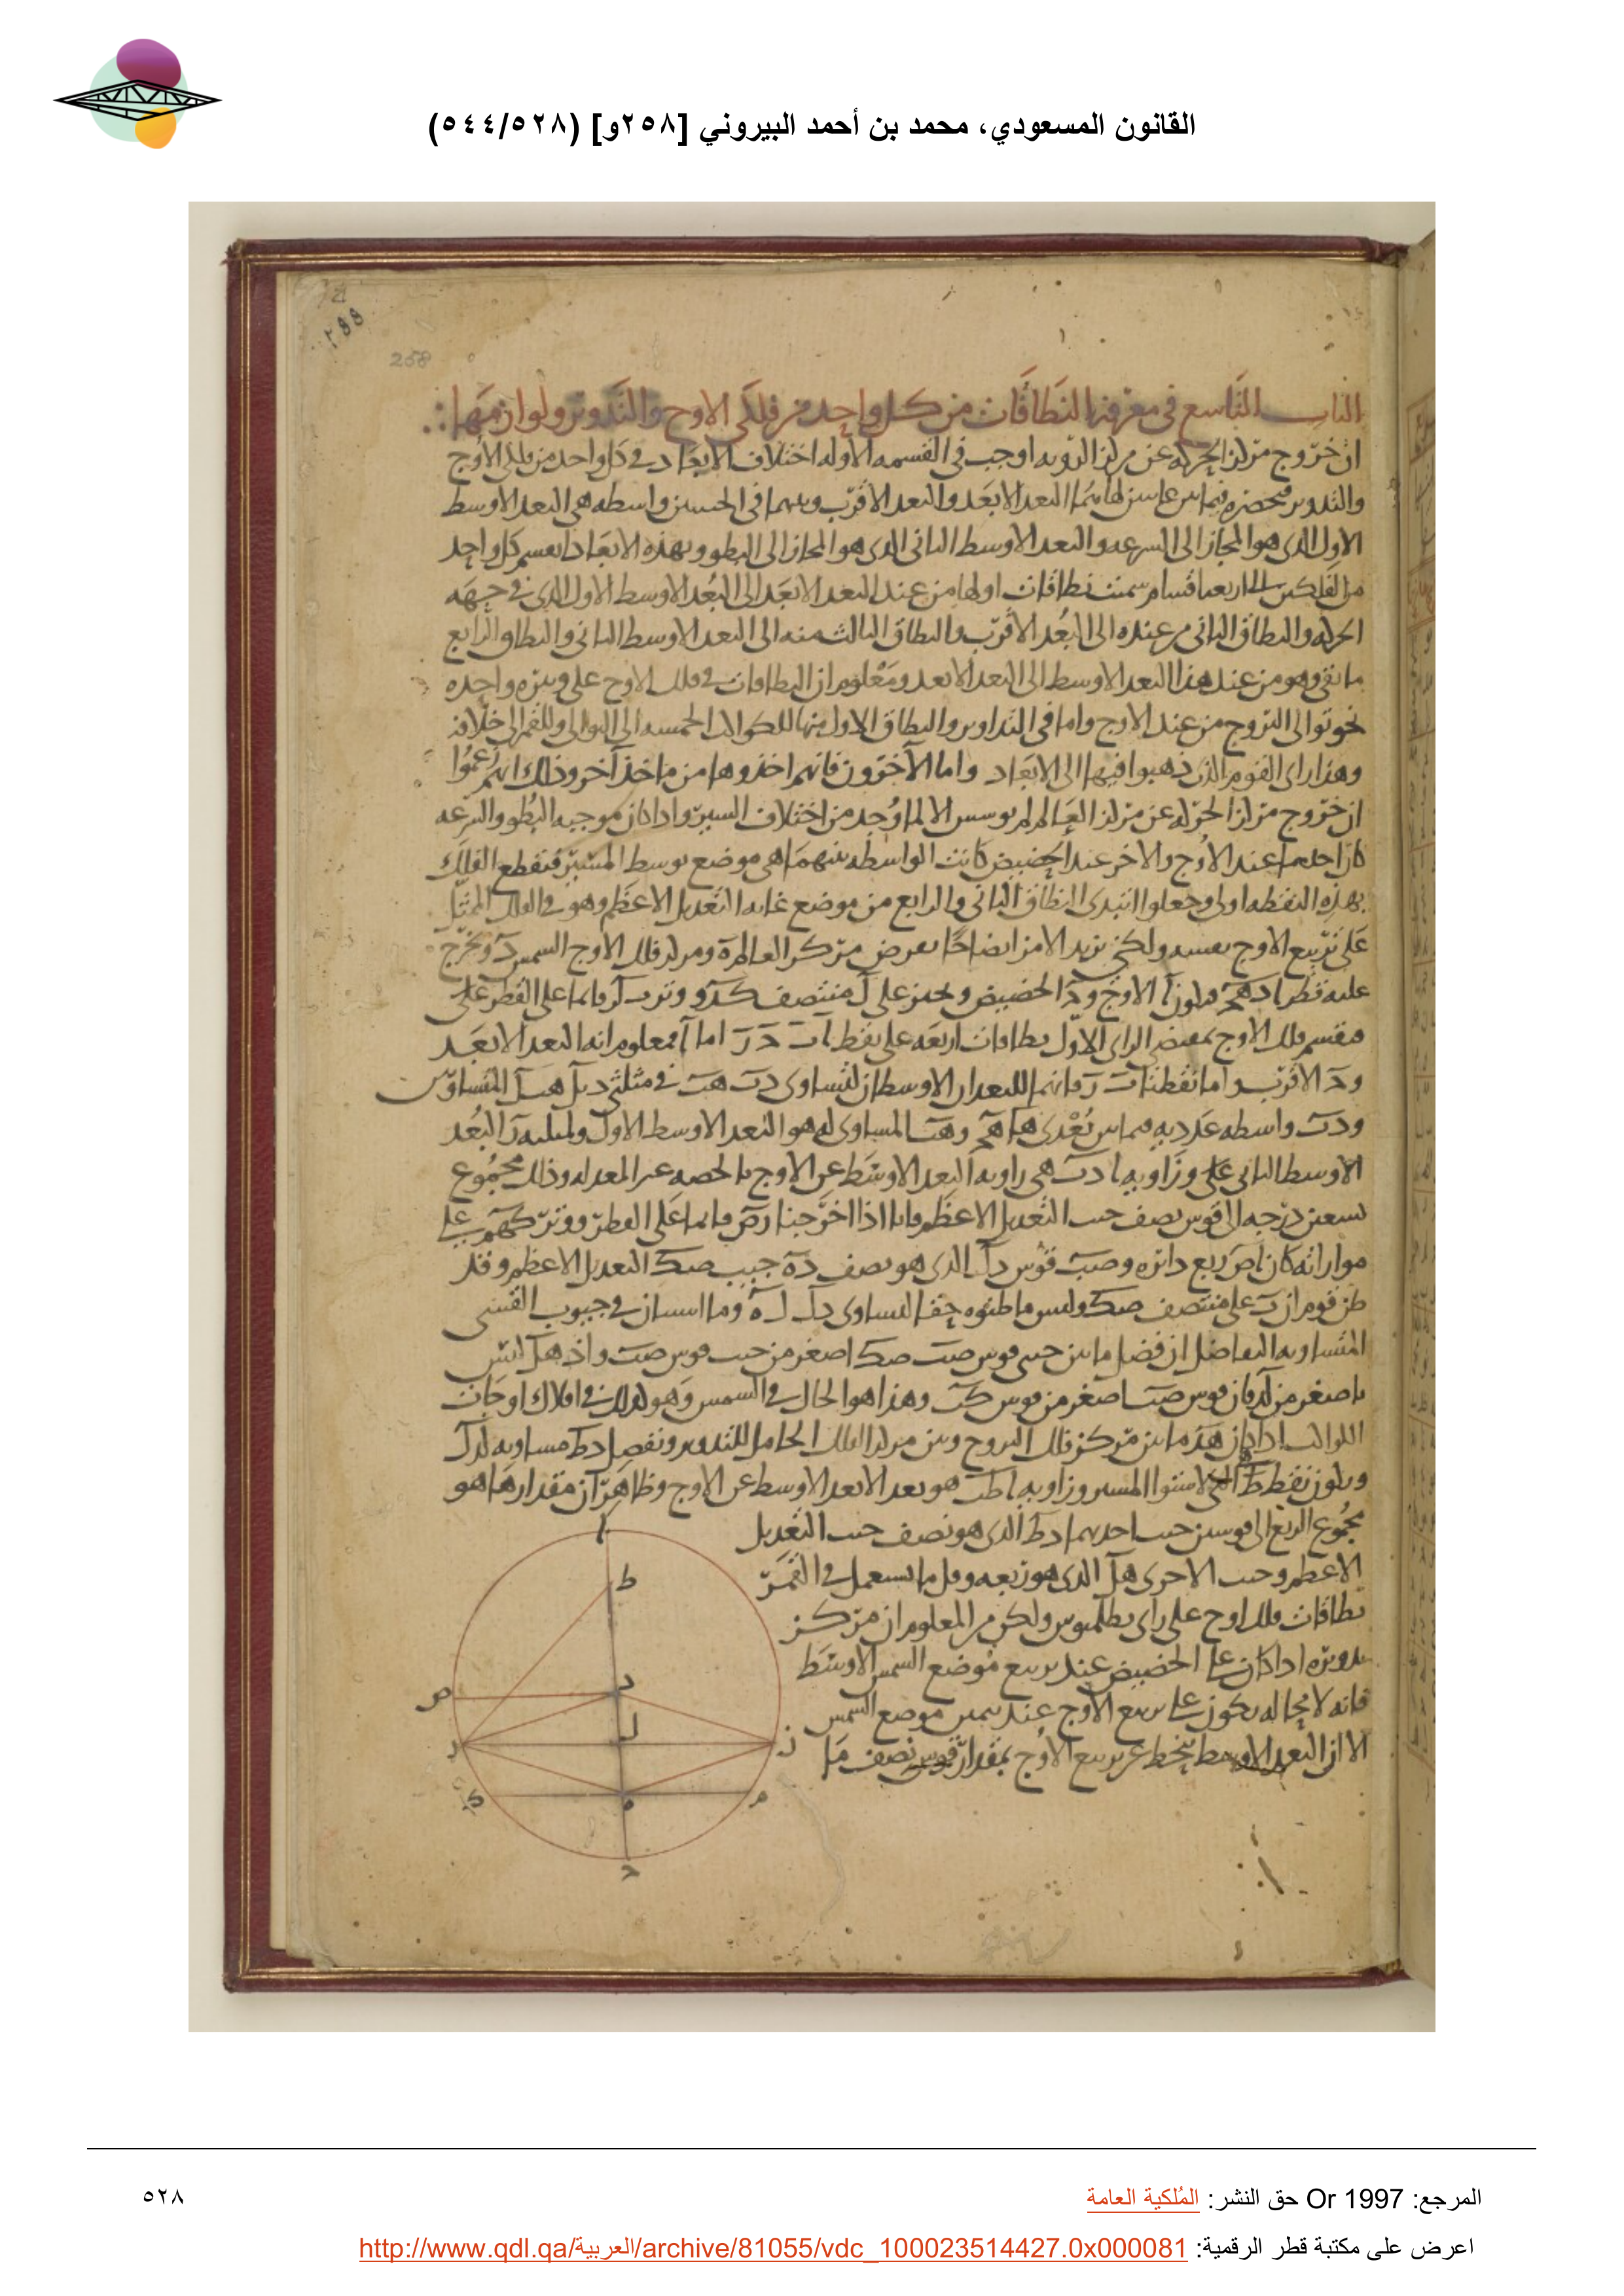 القانون المسعودي، محمد بن أحمد البيروني [٢٥٨و] (٥٤٤/٥٢٨)
٢٩٩
258
الباب التاسع في معرفة النطاقات من كل واحد من فلكي الاوج والتدوير ولوازمها
ان خروج مركز الحركه عن مركز الرويه اوجب في القسمه الاوله اختلاف الابعاد في كل واحد من فلكي الاوج
والتدوير البعد الابعد والبعد الاقرب واسطه هي البعد الاوسط
الاول الذي هو المجاز الى السرعه والبعد الاوسط الثاني الذي هو المجاز الى البطو وبهذه الابعاد كل واحد
من الفلكين الى اربعه اقسام سميت نطاقات اولها من عند البعد الابعد الى البعد الاوسط الاول الذي في جهه
الحركه والنطاق الثاني من عنده الى البعد الاقرب والنطاق الثالث منه الى البعد الاوسط الثاني والنطاق الرابع
ما بقي وهو من عند هذا البعد الاوسط الى البعد الابعد ومعلوم ان النطاقات في فلك الاوج على وتيره واحده
نحو توالى البروج من عند الاوج واما في التداوير والنطاق الاول منها للكواكب الخمسه الى التوالى وللقمر الى خلافه
وهذا راى القوم الذين ذهبوا فيها الى الابعاد واما الآخرون فانهم اخذوها من ماخذ آخر وذلك انهم زعموا
ان خروج مركز الحركه عن مركز العالم لم الا لما وجد من اختلاف السير واذا كان موجبه البطو والسرعه
كان احدهما عند الاوج والاخر عند الحضيض كانت الواسطه بينهما هي موضع توسط المسير فتقطع الفلك
بهذه النقطه اولى وجعلوا النطاق الثاني والرابع من موضع غايه التعديل الاعظم وهو في الفلك الممثل
على تربيع الاوج نفسه ولكن نزيد الامر ايضاحا نفرض مركز العالم ه ومركز فلك الاوج الشمس د ونخرج
عليه قطر ا د ه ج فيكون آ الاوج و ج الحضيض على ل منتصف د ه وتر ب ل ز قائما على القطر على
فنقسم فلك الاوج بمقتضى الراى الاول نطاقات اربعه على نقط ا ب ج ز اما آ فمعلوم انه البعد الابعد
و ج الاقرب واما نقطتا ب ز فانهما للبعدان الاوسطان لتساوى د ب ه ب في مثلثي د ب ل ه ب ل
و د ب واسطه بعدي ه ا ه ج و ه ب المساوى له هو البعد الاوسط الاول ز البعد
الاوسط الثاني وزاويه ا د ب هي زاويه البعد الاوسط عن الاوج بالحصه المعدله وذلك مجموع
تسعين درجه الى قوس نصف جيب التعديل الاعظم فانا اذا اخرجنا د ص قائما على القطر ووتر ك ه م على
موازاته كان ا ص ربع دائره و ص ب قوس د ل الذي هو نصف د ه جيب ص ك التعديل الاعظم وقد
ظن قوم ان ب على منتصف ص ك وليس ما ظنوه حقا لتساوى د ل ل ه في جيوب القسى
المتساويه التفاضل ان فضل ما بين ص ب ص ك اصغر من جيب قوس ص ب
باصغر من ل د فان قوس ص ب اصغر من قوس ك ب وهذا هو الحال في الشمس وهو كذلك في افلاك اوجات
الكواكب اذا كان ه د ما بين مركز فلك البروج وبين مركز الفلك الحامل للتدوير ونفصل د ط مساويه ل د ل
ويكون نقطه ط لاستوا المسير وزاويه ا ط ب هو بعد البعد الاوسط عن الاوج وظاهر ان مقدارها هو
مجموع الربع الى قوسين جيب احديهما د ط الذي هو نصف جيب التعديل
الاعظم وجيب الاخرى ه ل الذي هو ربعه وقل ما يستعمل في القمر
نطاقات فلك اوج على راى بطلميوس ولكن من المعلوم ان مركز
تدويره اذا كان على الحضيض عند تربيع موضع الشمس الاوسط
فانه لا محاله يكون على تربيع الاوج عند موضع الشمس
الا ان البعد الاوسط ينحط عن تربيع الاوج بمقدار قوس نصف ما
ا
ط
ص
د
ل
ب
ز
ك
ه
م
ج
المرجع: Or 1997 حق النشر: المُلكية العامة
٥٢٨
اعرض على مكتبة قطر الرقمية: http://www.qdl.qa/العربية/archive/81055/vdc_100023514427.0x000081